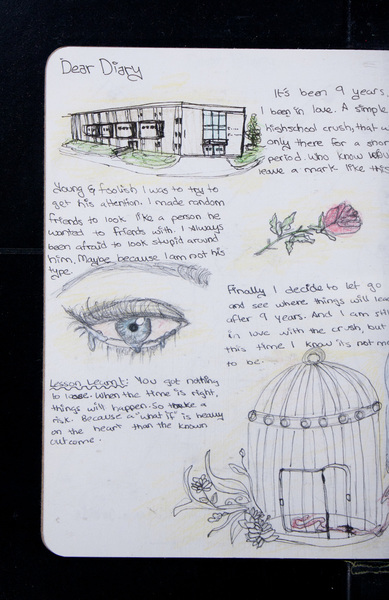 Dear Diary
It's been 9 years,
I been in love. A simple
highschool crush, that
only there for a shor
period. Who know
leave a mark like this
Young & foolish I was to try to
get his attention. I made random
friends to look like a person he
wanted to friends with. I always
been afraid to look stupid around
him. Maybe because I am not his
type.
Finally I decide to let go
and see where things will lea
after 9 years. And I am sti
in love with the crush, but
this time I know its not me
to be.
Lesson Learnt: You got nothing
to lose. When the time is right,
things will happen. So take a
risk. Because a "what if" is heavy
on the heart than the known
outcome.